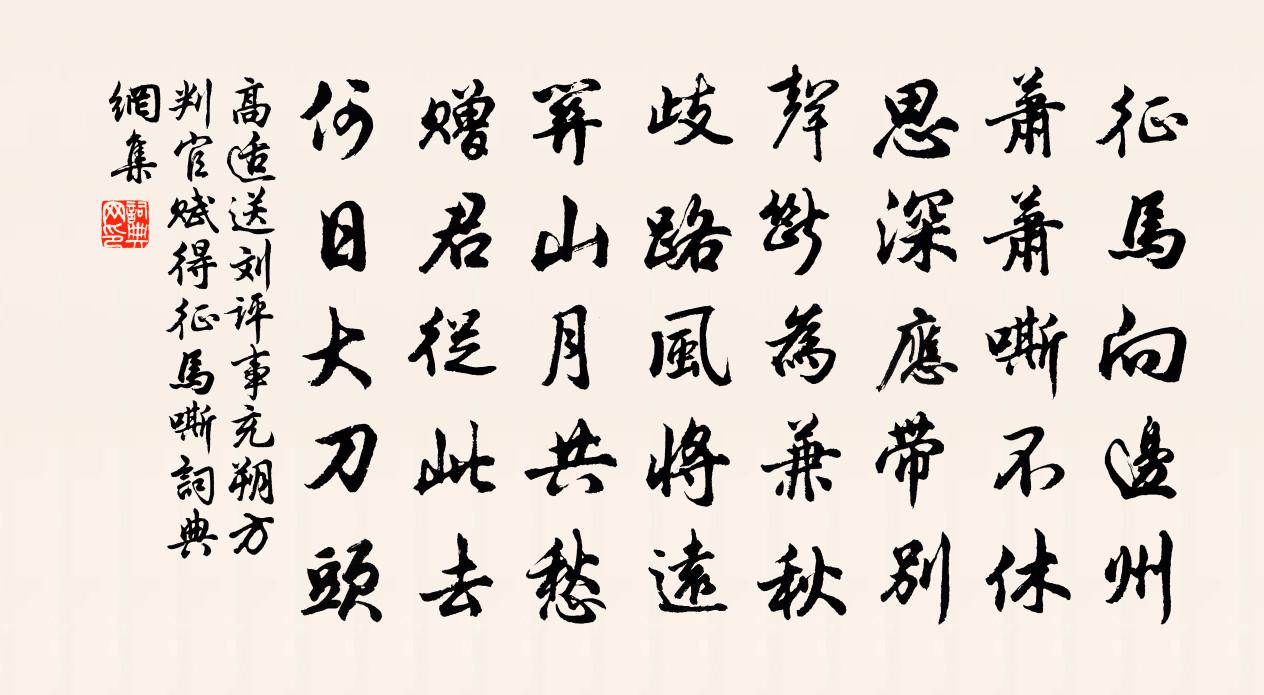 征馬向邊州
蕭蕭嘶不休
思深應帶別
聲斷為兼秋
歧路風將遠
關山月共愁
贈君從此去
何日大刀頭
高适送刘評事充朔方
判官賦得征馬嘶詞典
網集